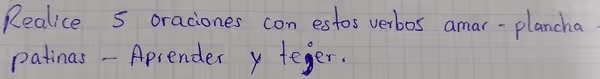 Realice 5 oraciones con estos verbos amar - plancha -
patinas - Aprender y tejer.